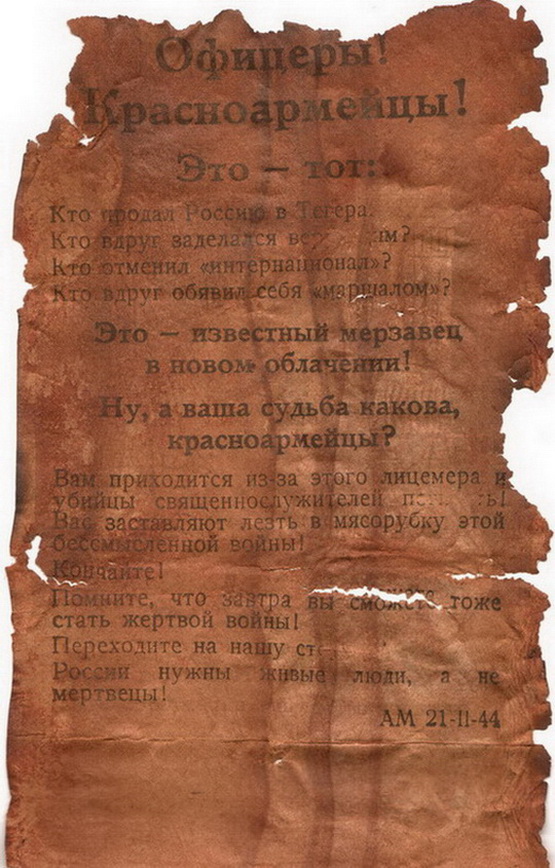 Офицеры!
Красноармейцы!
Это — тот:
Кто продал Россию в Тегера
Кто вдруг заделался
Кто отменил «интернационал»?
Кто вдруг обявил себя «маршалом»?
Это — известный мерзавец
в новом облачении!
Ну, а ваша судьба какова,
красноармейцы?
Вам приходится из-за этого лицемера и
убийцы священнослужителей
Вас заставляют лезть в мясорубку этой
бессмысленной войны!
Кончайте!
Помните, что завтра вы сможете тоже
стать жертвой войны!
Переходите на нашу
России нужны живые люди, а не
мертвецы!
АМ 21-II-44